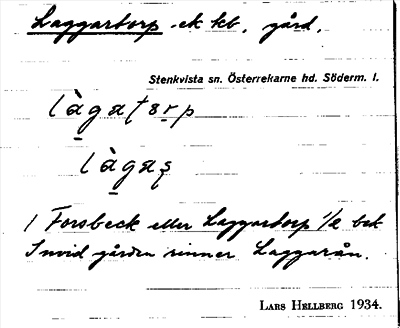 Laggartorp ek kb. gård.
Stenkvista sn. Österrekarne hd. Söderm. l.
làgaṭorp
làgaṣ
1 Forsbeck eller Laggartorp 1/2 bek
Invid gården rinner Laggarån.
LARS HELLBERG 1934.